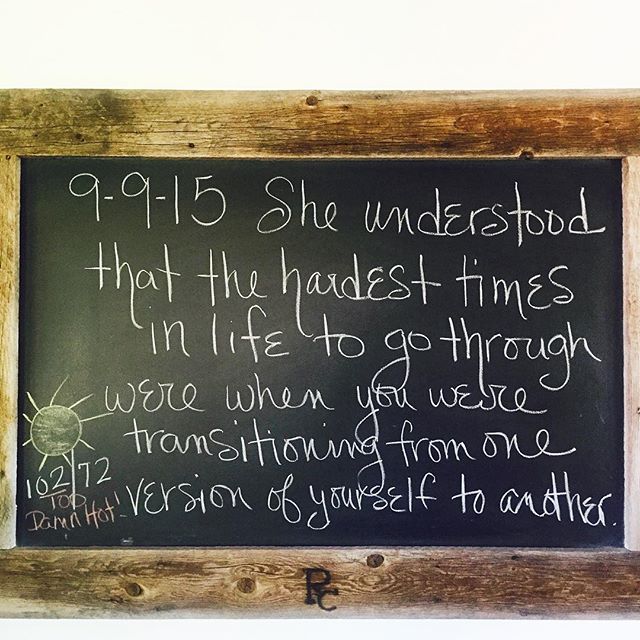 9-9-15 She understood
that the hardest times
in life to go through
were when you were
transitioning from one
version of yourself to another.
102/72
Too
Damn Hot!
RC